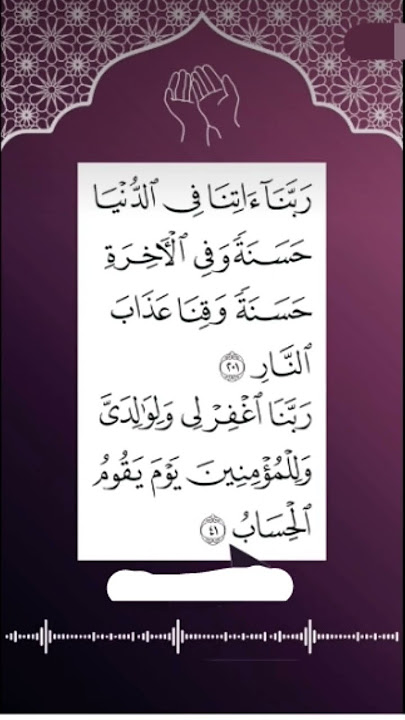 رَبَّنَآ ءَاتِنَا فِى ٱلدُّنْيَا
حَسَنَةً وَفِى ٱلْءَاخِرَةِ
حَسَنَةً وَقِنَا عَذَابَ
ٱلنَّارِ ٢٠١
رَبَّنَا ٱغْفِرْ لِى وَلِوَٰلِدَىَّ
وَلِلْمُؤْمِنِينَ يَوْمَ يَقُومُ
ٱلْحِسَابُ ٤١